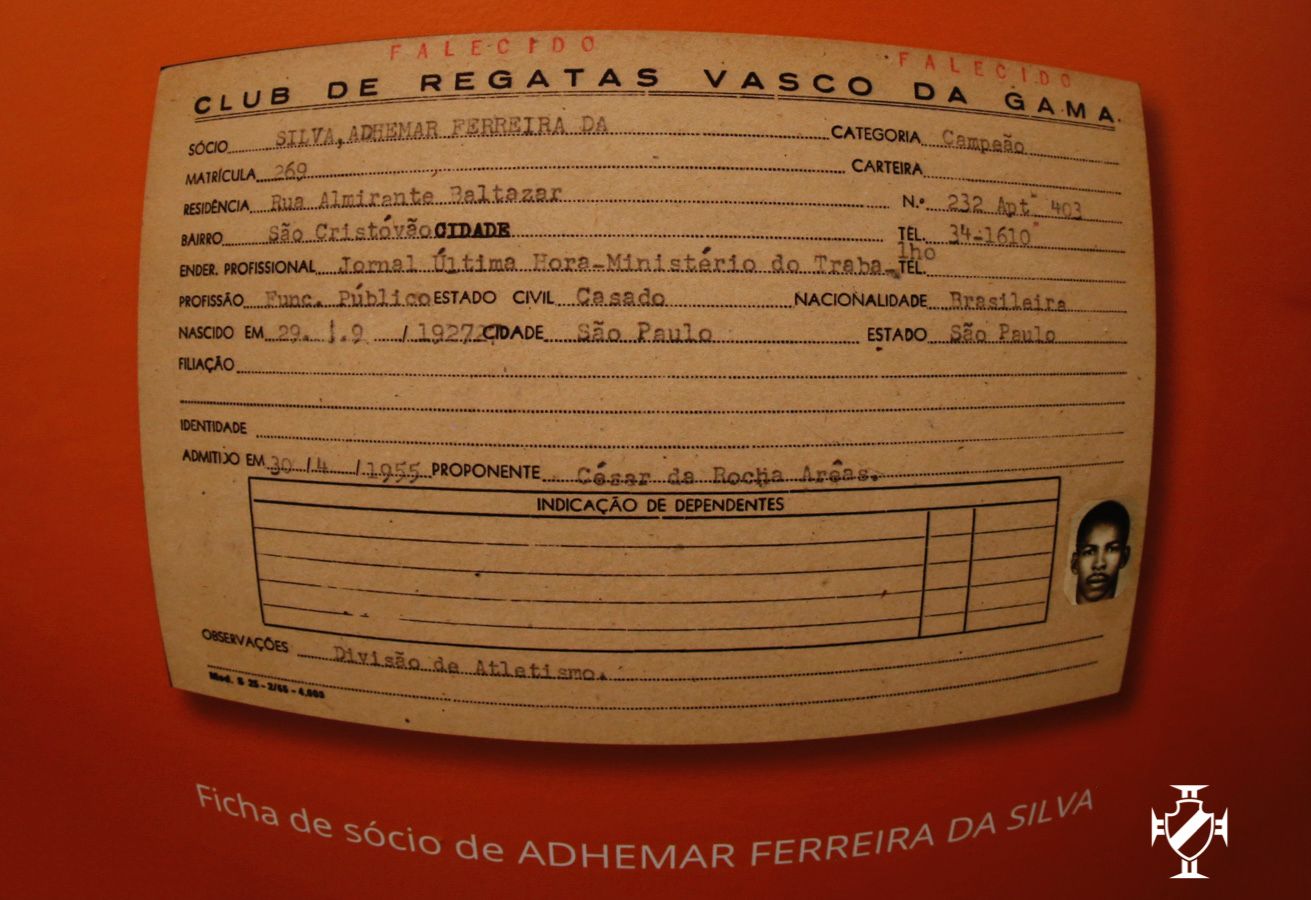 FALECIDO FALECIDO
CLUB DE REGATAS VASCO DA GAMA.
SÓCIO SILVA, ADHEMAR FERREIRA DA CATEGORIA Campeão
MATRÍCULA 269 CARTEIRA
RESIDÊNCIA Rua Almirante Baltazar N.º 232 Apt 403
BAIRRO São Cristóvão CIDADE TEL. 34-1610
ENDER. PROFISSIONAL Jornal Última Hora-Ministério do Traba-lho TEL.
PROFISSÃO Func. Público ESTADO CIVIL Casado NACIONALIDADE Brasileira
NASCIDO EM 29. 9 / 1927 CIDADE São Paulo ESTADO São Paulo
FILIAÇÃO
IDENTIDADE
ADMITIDO EM 30 / 4 / 1955 PROPONENTE César da Rocha Arêas.
INDICAÇÃO DE DEPENDENTES
OBSERVAÇÕES Divisão de Atletismo.
Mod. S 25 - 2/65 - 4.000
Ficha de sócio de ADHEMAR FERREIRA DA SILVA